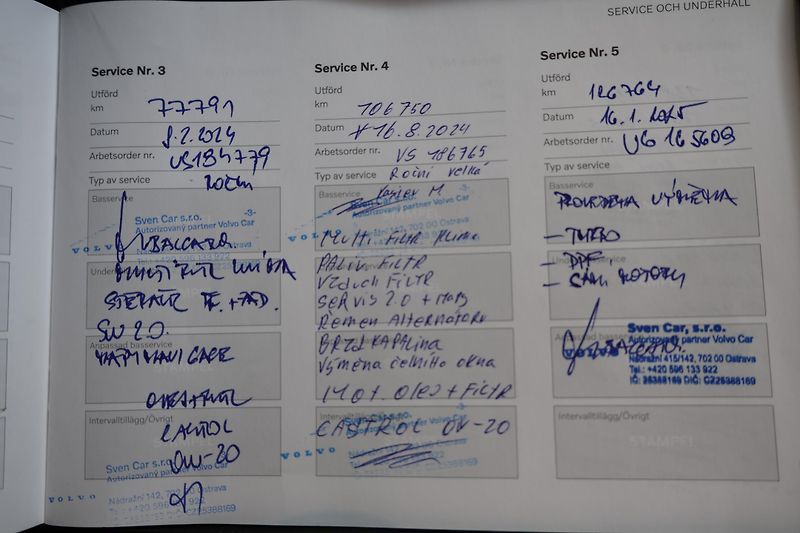 SERVICE OCH UNDERHÅLL
Service Nr. 3
Utförd
km 77791
Datum 8.2.2024
Arbetsorder nr. VS184779
Typ av service Roční
Basservice
Sven Car s.r.o. -3-
Autorizovaný partner Volvo Car
VOLVO
+420 596 133 922
MULTIFILTR
STĚRAČE
SW 2.0.
MAPY NAVIGACE
Anpassad basservice
OLEJ+FILTR
CASTROL
Intervalltillägg/Övrigt
0W-20
Sven Car s.r.o.
Autorizovaný partner Volvo Car
VOLVO
Nádražní 142, 702 00 Ostrava
Service Nr. 4
Utförd
km 106750
Datum 16.8.2024
Arbetsorder nr. VS 186765
Typ av service Roční velká
Basservice
Sven Car s.r.o. -3-
Autorizovaný partner Volvo Car
VOLVO
Multi Filtr Klima
PALIV. FILTR
Vzduch FILTR
SERVIS 2.0 + Mapy
Řemen Alternátoru
BRZD KAPALINA
Výměna čelního okna
Mot. olej + FILTR
Intervalltillägg/Övrigt
CASTROL 0W-20
VOLVO
Service Nr. 5
Utförd
km 126764
Datum 16.1.2025
Arbetsorder nr. VG 165609
Typ av service
Basservice
PROVEDENA VÝMĚNA
- TURBO
- DPF
Sven Car, s.r.o.
Autorizovaný partner Volvo Car
VOLVO
Nádražní 415/142, 702 00 Ostrava
Tel.: +420 596 133 922
IČ: 25388169 DIČ: CZ25388169
Anpassad basservice
Intervalltillägg/Övrigt
STÄMPEL